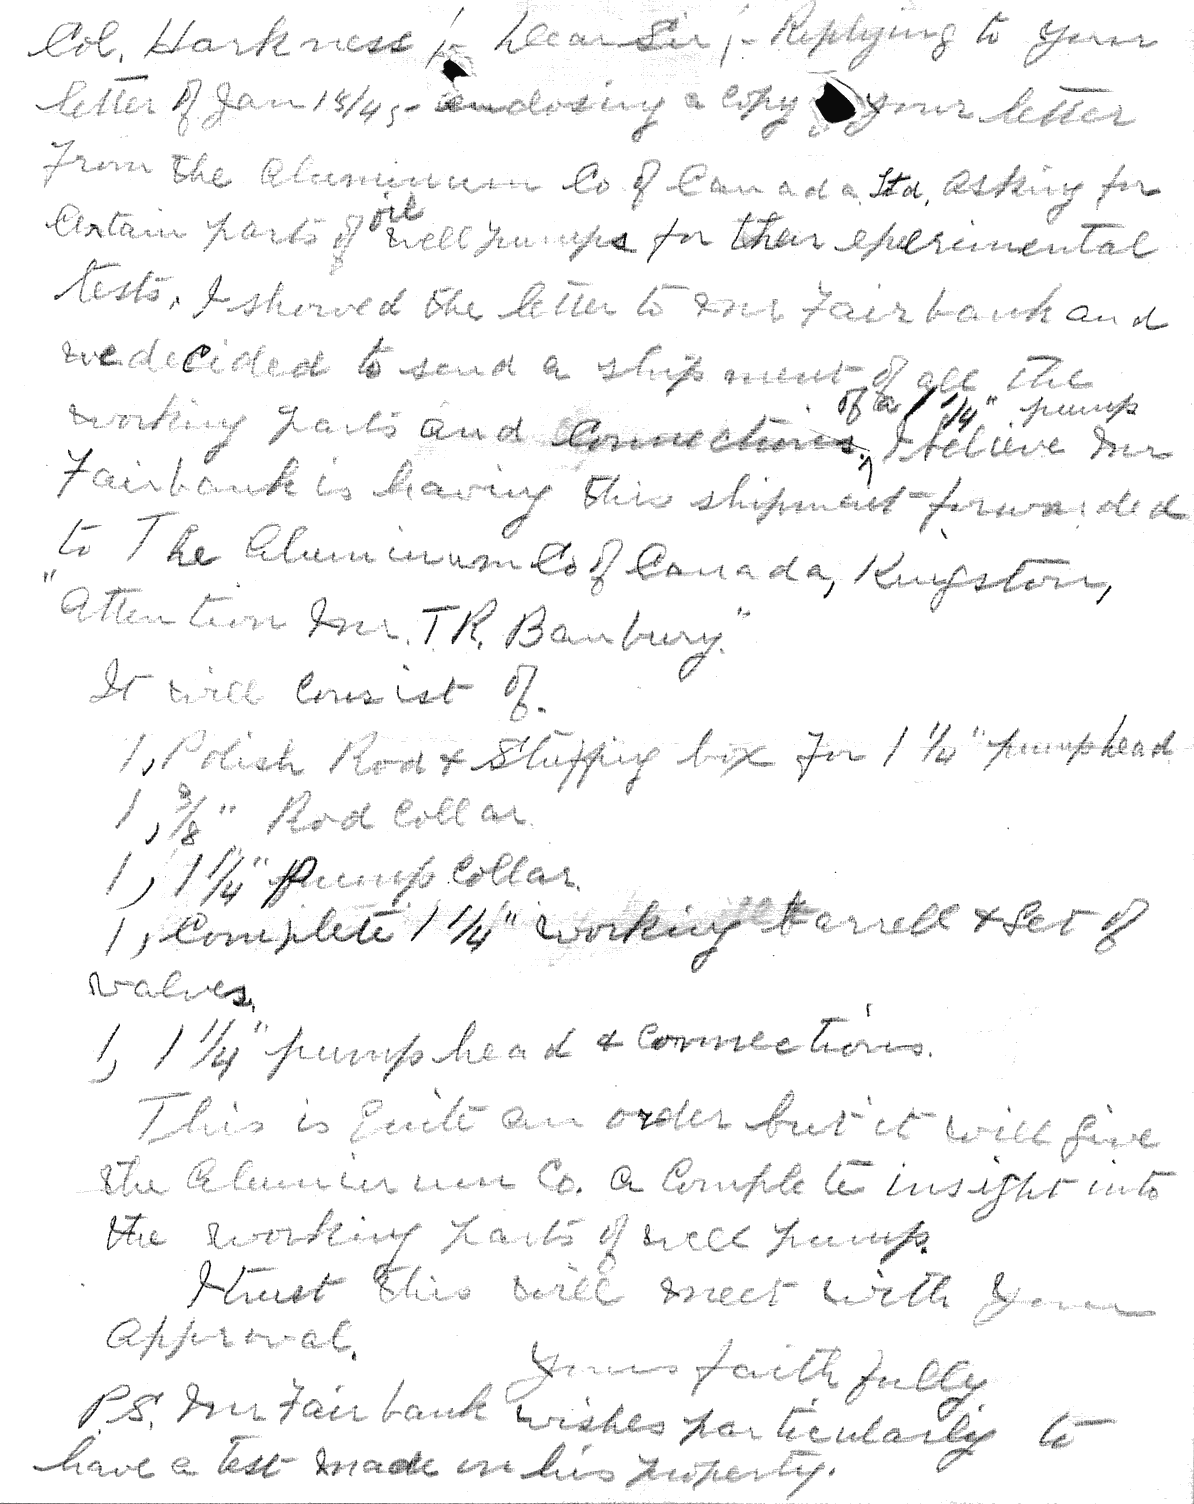 Col. Harkness;- Dear Sir;- Replying to your
letter of Jan 18/45,- enclosing a copy your letter
From the Aluminum Co of Canada Ltd, asking for
Certain parts of oil well pumps for their eperimental
tests. I showed the letter to Mr Fairbank and
we decided to send a shipment of all the
working parts and Connections of a 1 1/4" pump. I believe Mr
Fairbank is having this shipment forwarded
to The Aluminum Co of Canada, Kingston,
"Attention Mr. T.R. Banbury."
It will Consist of.
1, Polish Rod & Stuffing box For 1 1/4" pump head
1, 3/8" Rod Collar.
1, 1 1/4" pump Collar.
1, Complete 1 1/4" working barrell & Set of
valves.
1, 1 1/4" pump head & Connections.
This is Quite an order but it will give
the Aluminum Co. a Complete insight into
the working parts of well pump.
I trust this will meet with your
approval.
Yours faithfully
P.S. Mr Fairbank wishes particularly to
have a test made on his property.